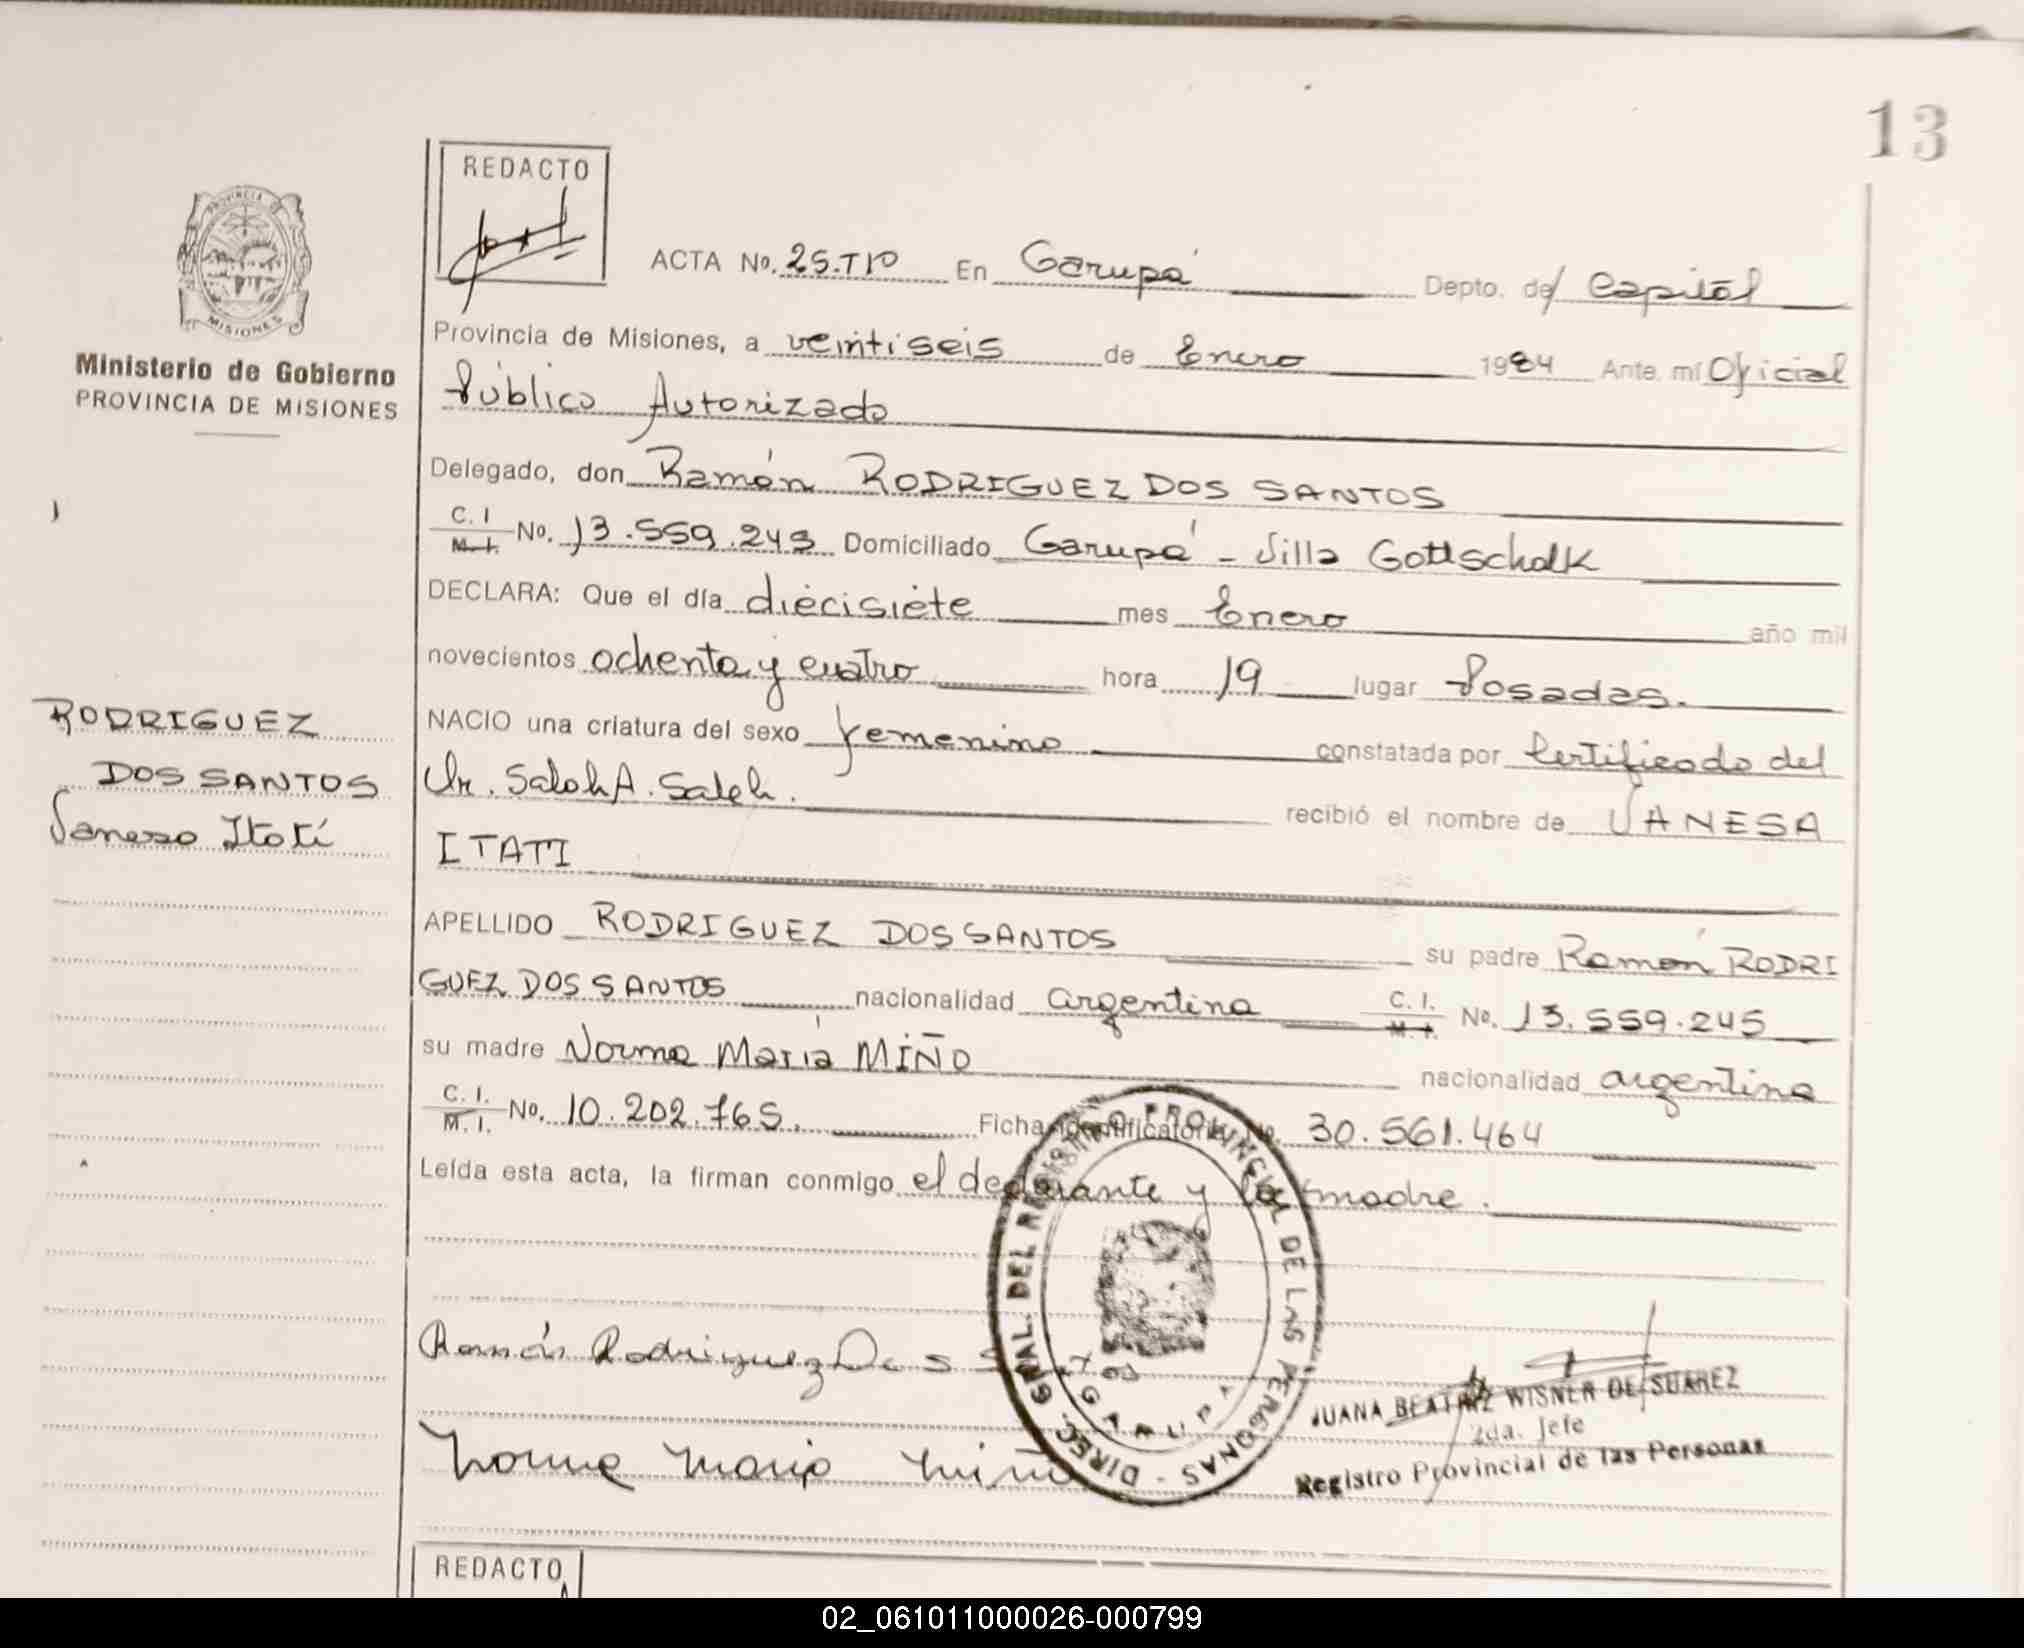 13
REDACTO
PROVINCIA DE
MISIONES
Ministerio de Gobierno
PROVINCIA DE MISIONES
ACTA No. 25.Tº Iº En Garupá Depto. de Capital
Provincia de Misiones, a veintiseis de Enero 1984 Ante mí Oficial
Público Autorizado
Delegado, don Ramón RODRIGUEZ DOS SANTOS
C. I M. I. No. 13.559.245 Domiciliado Garupá - Villa Gottschalk
DECLARA: Que el día diecisiete mes Enero año mil
novecientos ochenta y cuatro hora 19 lugar Posadas.
NACIO una criatura del sexo femenino constatada por Certificado del
Dr. Saloh A. Saleh. recibió el nombre de VANESA
ITATI
APELLIDO RODRIGUEZ DOS SANTOS su padre Ramón RODRI
GUEZ DOS SANTOS nacionalidad argentina C. I. M. I. No. 13.559.245
su madre Norma María MIÑO nacionalidad argentina
C. I. M. I. No. 10.202.765. Ficha Identificatoria No. 30.561.464
Leída esta acta, la firman conmigo el declarante y la madre.
RODRIGUEZ
DOS SANTOS
Vanesa Itatí
Ramón Rodriguez Dos
Norma Maria Miño
DIREC. GRAL. DEL REGISTRO PROVINCIAL DE LAS PERSONAS -
GARUPA
JUANA BEATRIZ WISNER DE SUAREZ
2da. Jefe
Registro Provincial de las Personas
REDACTO
02_061011000026-000799